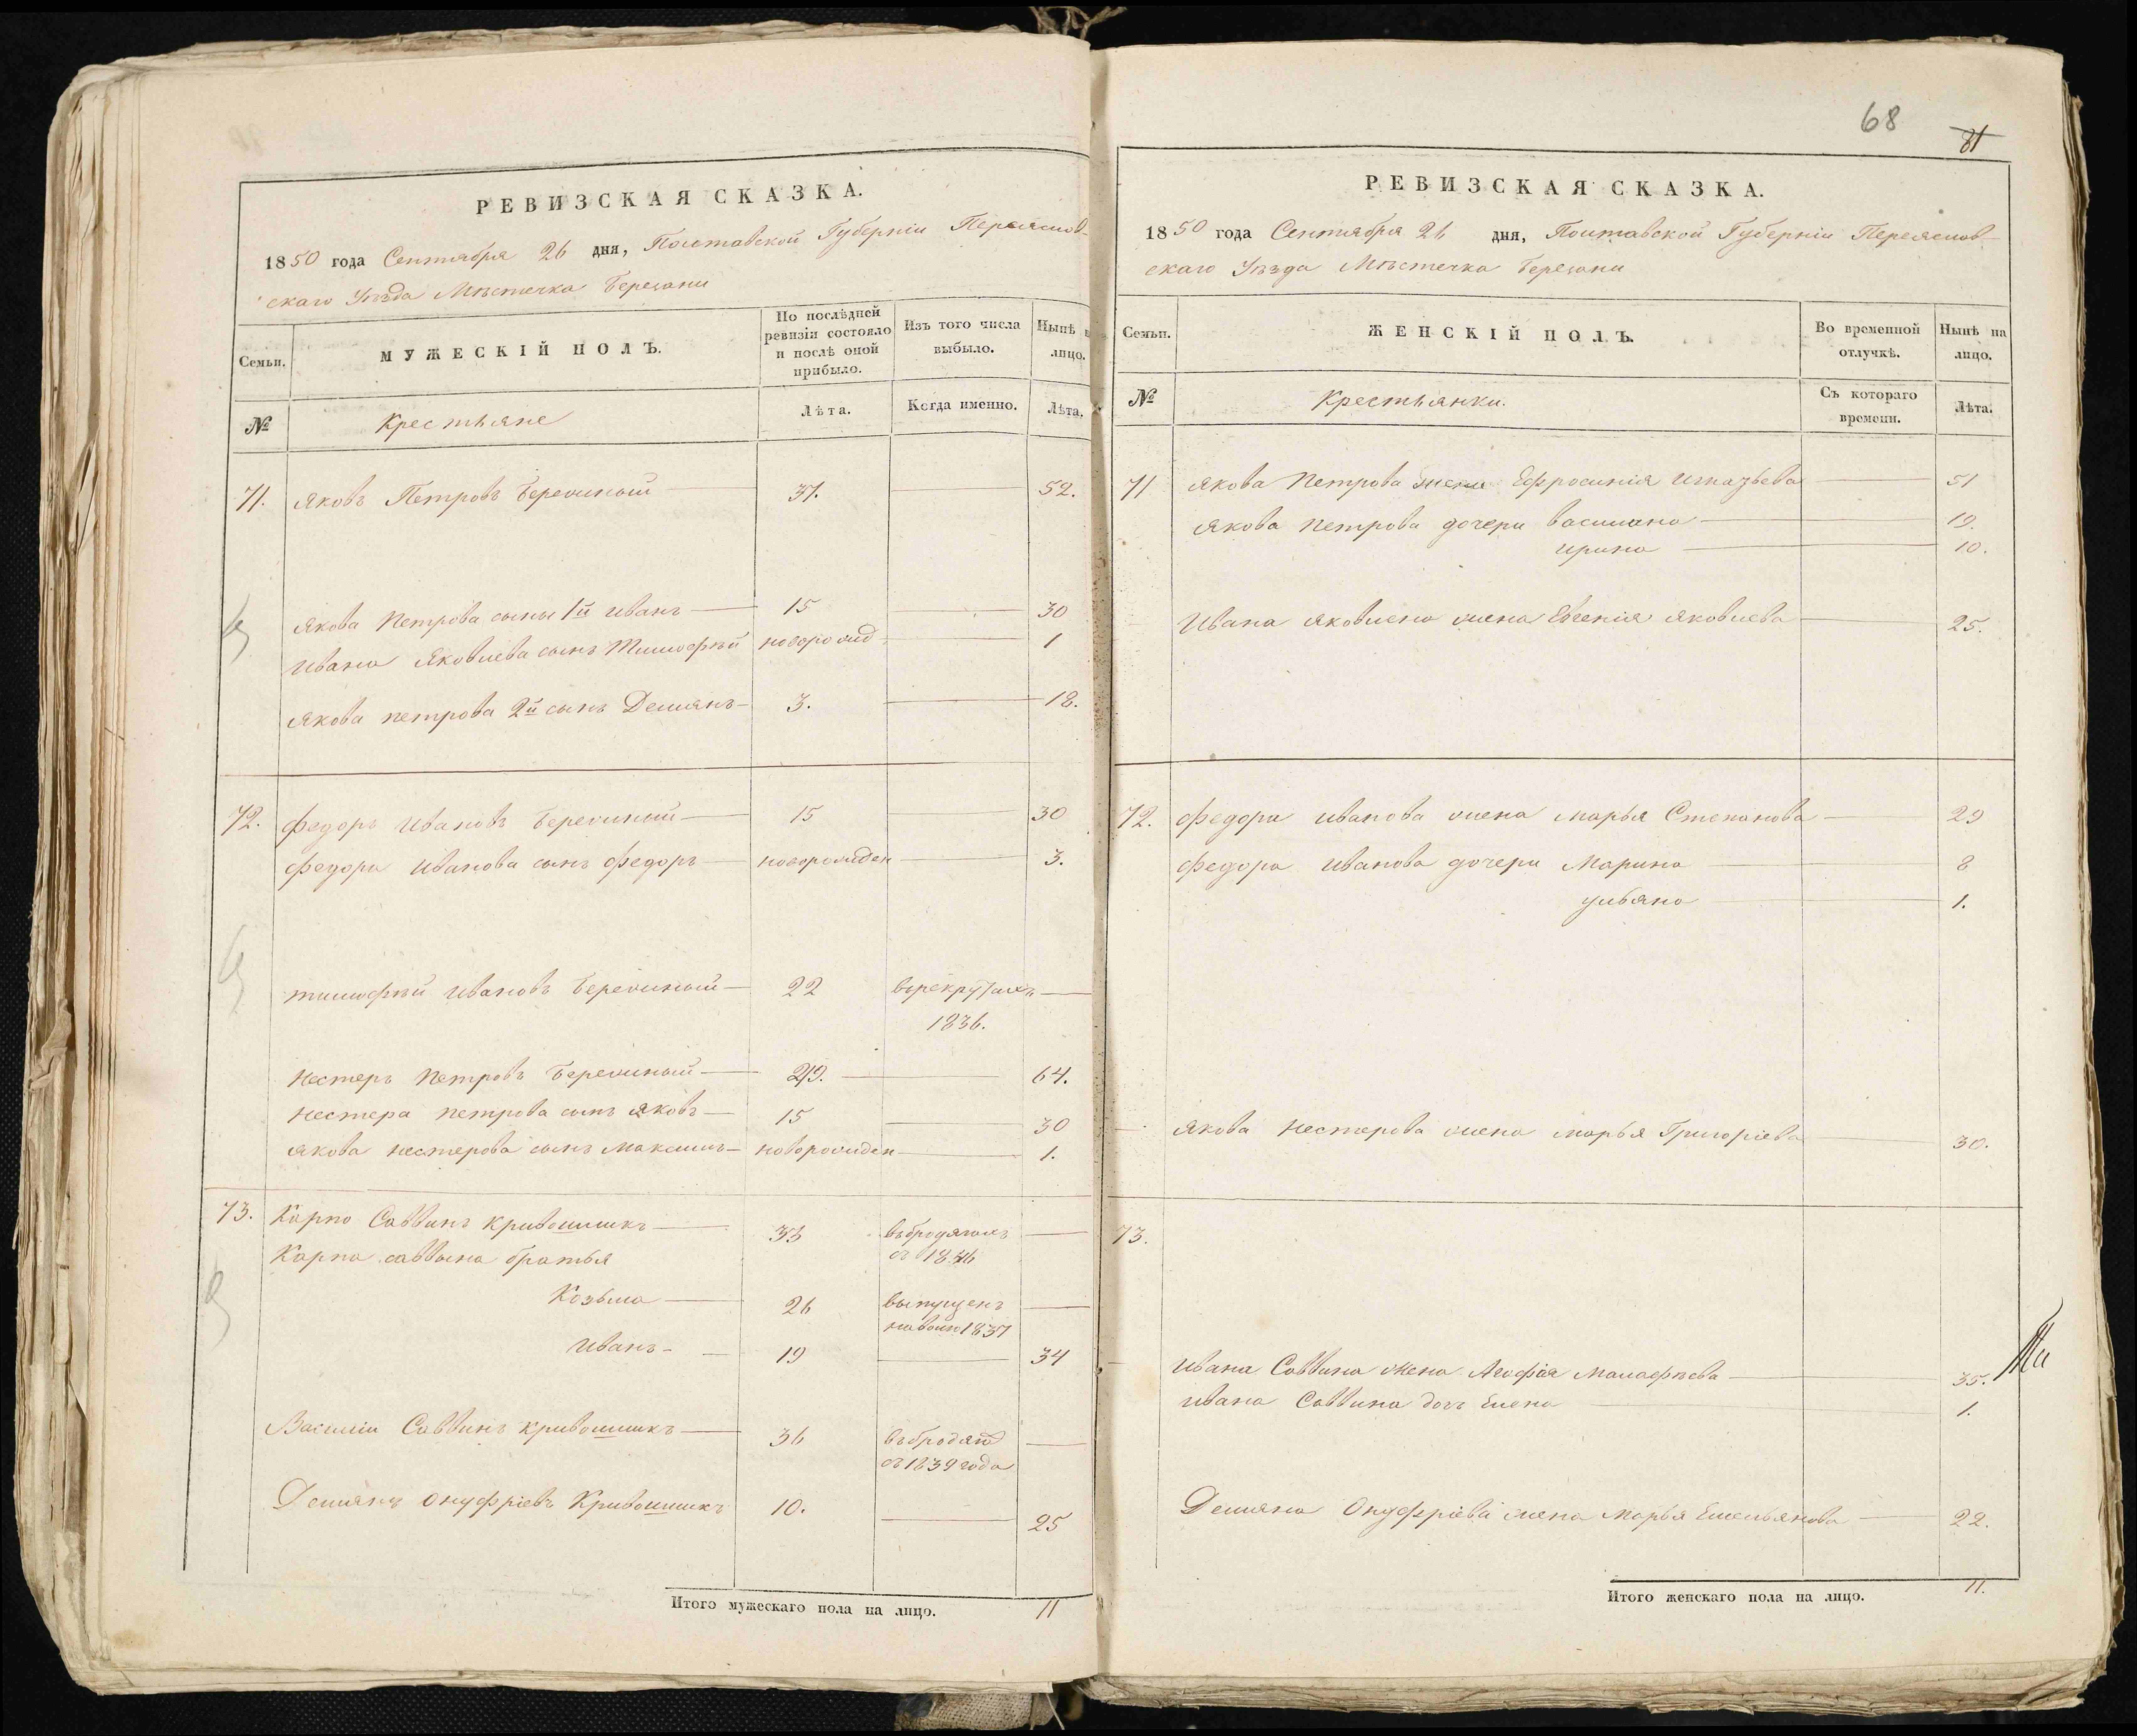 РЕВИЗСКАЯ СКАЗКА.
1850 года Сентября 26 дня, Полтавской Губерніи Переяслов-
скаго Уѣзда Мѣстечка Березани
Семьи.
МУЖЕСКІЙ ПОЛЪ.
По послѣдней ревизіи состояло и послѣ оной прибыло.
Изъ того числа выбыло.
Нынѣ на лицо.
№
Крестьяне
Лѣта.
Когда именно.
Лѣта.
71. Яковъ Петровъ Бережный 37. 52.
Якова Петрова сыны 1й Иванъ 15 30
Ивана Яковлева сынъ Тимофѣй новорожд 1
Якова петрова 2й сынъ Демянъ 3. 18.
72. Федоръ Ивановъ Бережный 15 30
Федора Иванова сынъ Федоръ новорожден 3.
Тимофѣй Ивановъ Бережный 22 въ рекрутахъ
1836.
Нестеръ Петровъ Бережный 29. 64.
Нестера петрова сынъ Яковъ 15 30
Якова Нестерова сынъ Максимъ новорожден 1.
73. Карпо Саввинъ Кривошликъ 33 въ бродягахъ
съ 1846
Карпа Саввина братья
Козьма 26 выпущенъ
1837
Иванъ 19 34
Василій Саввинъ Кривошликъ 36 въ бродяг
съ 1839 года
Демянъ Онуфріевъ Кривошликъ 10. 25
Итого мужескаго пола на лицо. 11
68
81
РЕВИЗСКАЯ СКАЗКА.
1850 года Сентября 26 дня, Полтавской Губерніи Переяслов-
скаго Уѣзда Мѣстечка Березани
Семьи.
ЖЕНСКІЙ ПОЛЪ.
Во временной отлучкѣ.
Нынѣ на лицо.
№
Крестьянки.
Съ котораго времени.
Лѣта.
71 Якова Петрова жена Ефросинія Игнатьева 51
Якова Петрова дочери Василина 19.
Ирина 10.
Ивана Яковлева жена Евгенія Яковлева 25.
72. Федора Иванова жена Марья Степанова 29
Федора Иванова дочери Марина 8
Ульяна 1.
Якова Нестерова жена Марья Григоріева 30.
73.
Ивана Саввина жена Агафія Малафѣева 35.
Ивана Саввина дочь Елена 1.
Демяна Онуфріева жена Марья Емельянова 22.
Итого женскаго пола на лицо. 11.